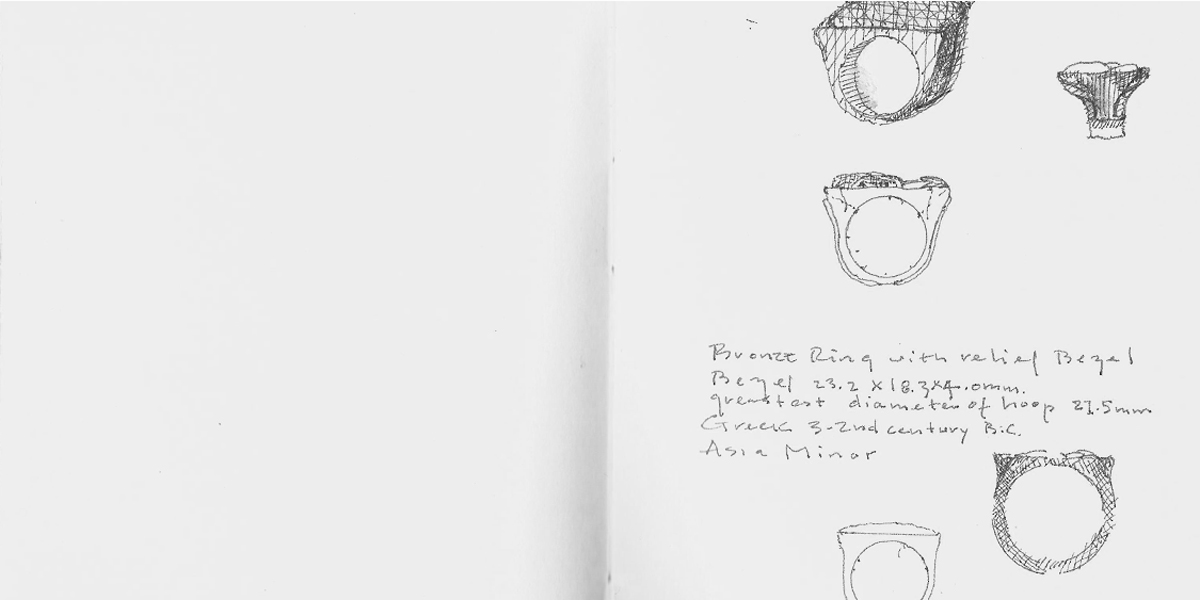 Bronze Ring with relief Bezel
Bezel 23.2 x 18.3 x 4.0mm.
greastest diameter of hoop 27.5mm
Greek 3-2nd century B.C.
Asia Minor